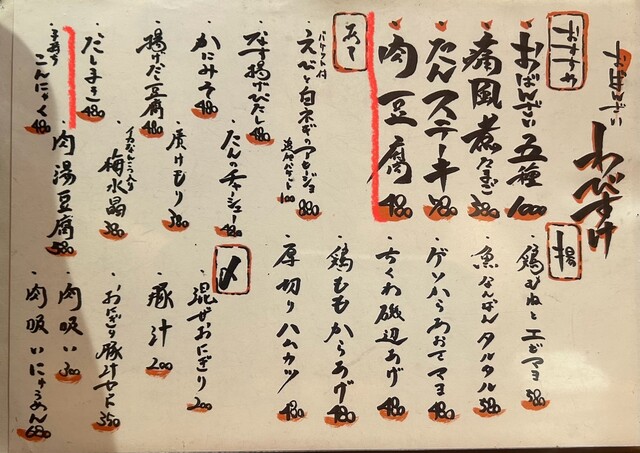 おばんざい
わびすけ
おすすめ
・おばんざい五種 1000
・痛風煮たまご 380
・たんステーキ 980
・肉豆腐 480
あて
・えびと白ネギのアヒージョ 880
バケット付
追加バケット 100
・なす揚げびたし 480
・たんのチャーシュー 480
・かにみそ 480
・漬けもり 380
・揚げだし豆腐 480
・梅水晶 380
・だしまき 480
・肉湯豆腐 580
・こんにゃく 480
揚
・鶏むねとエビマヨ 580
・魚なんばんタルタル 580
・ゲソからあおさマヨ 480
・ちくわ磯辺あげ 480
・鶏ももからあげ 480
・厚切りハムカツ 480
〆
・混ぜおにぎり 200
・豚汁 200
・おにぎり豚汁セット 350
・肉吸い 300
・肉吸いにゅうめん 680